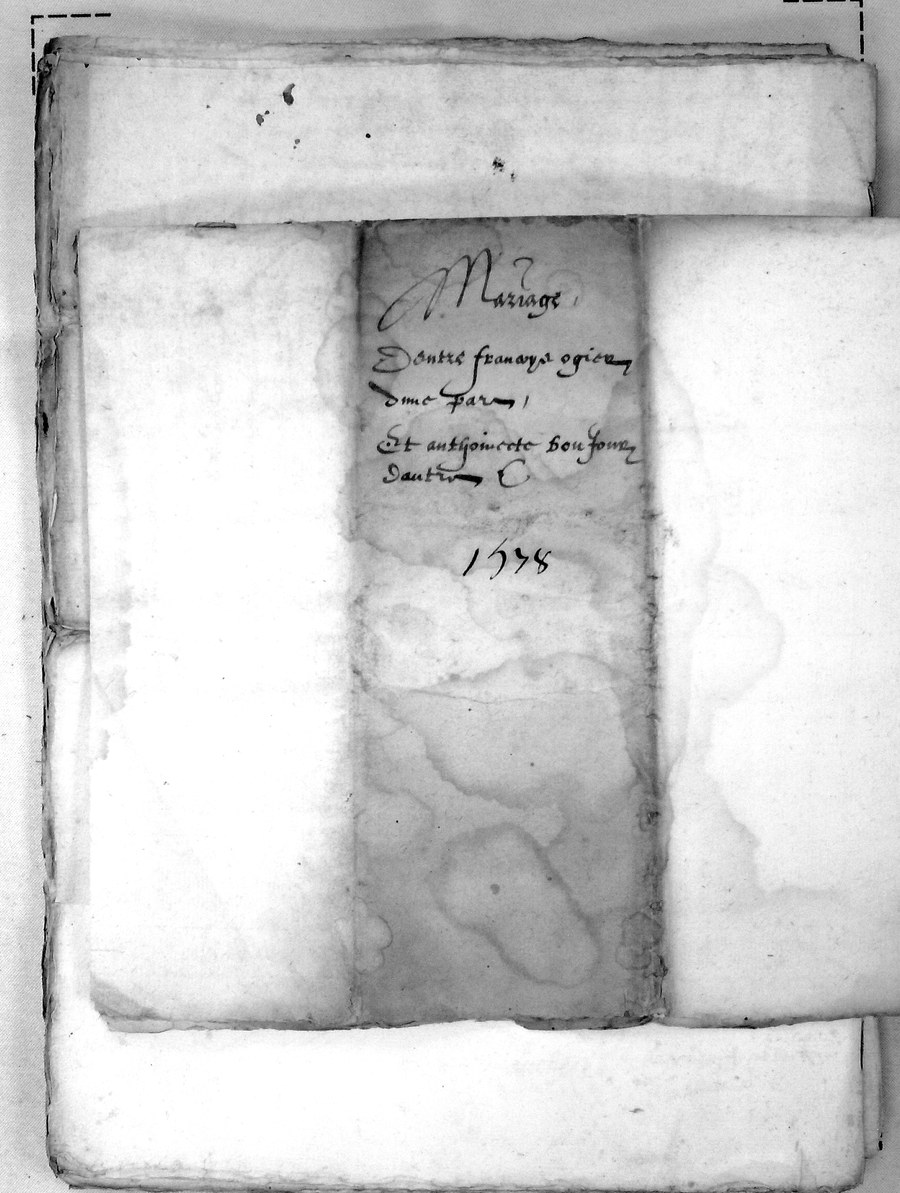 Mariage
Dentre francoys ogier
dune part
Et anthoinecte bon Jour
dautre
1578